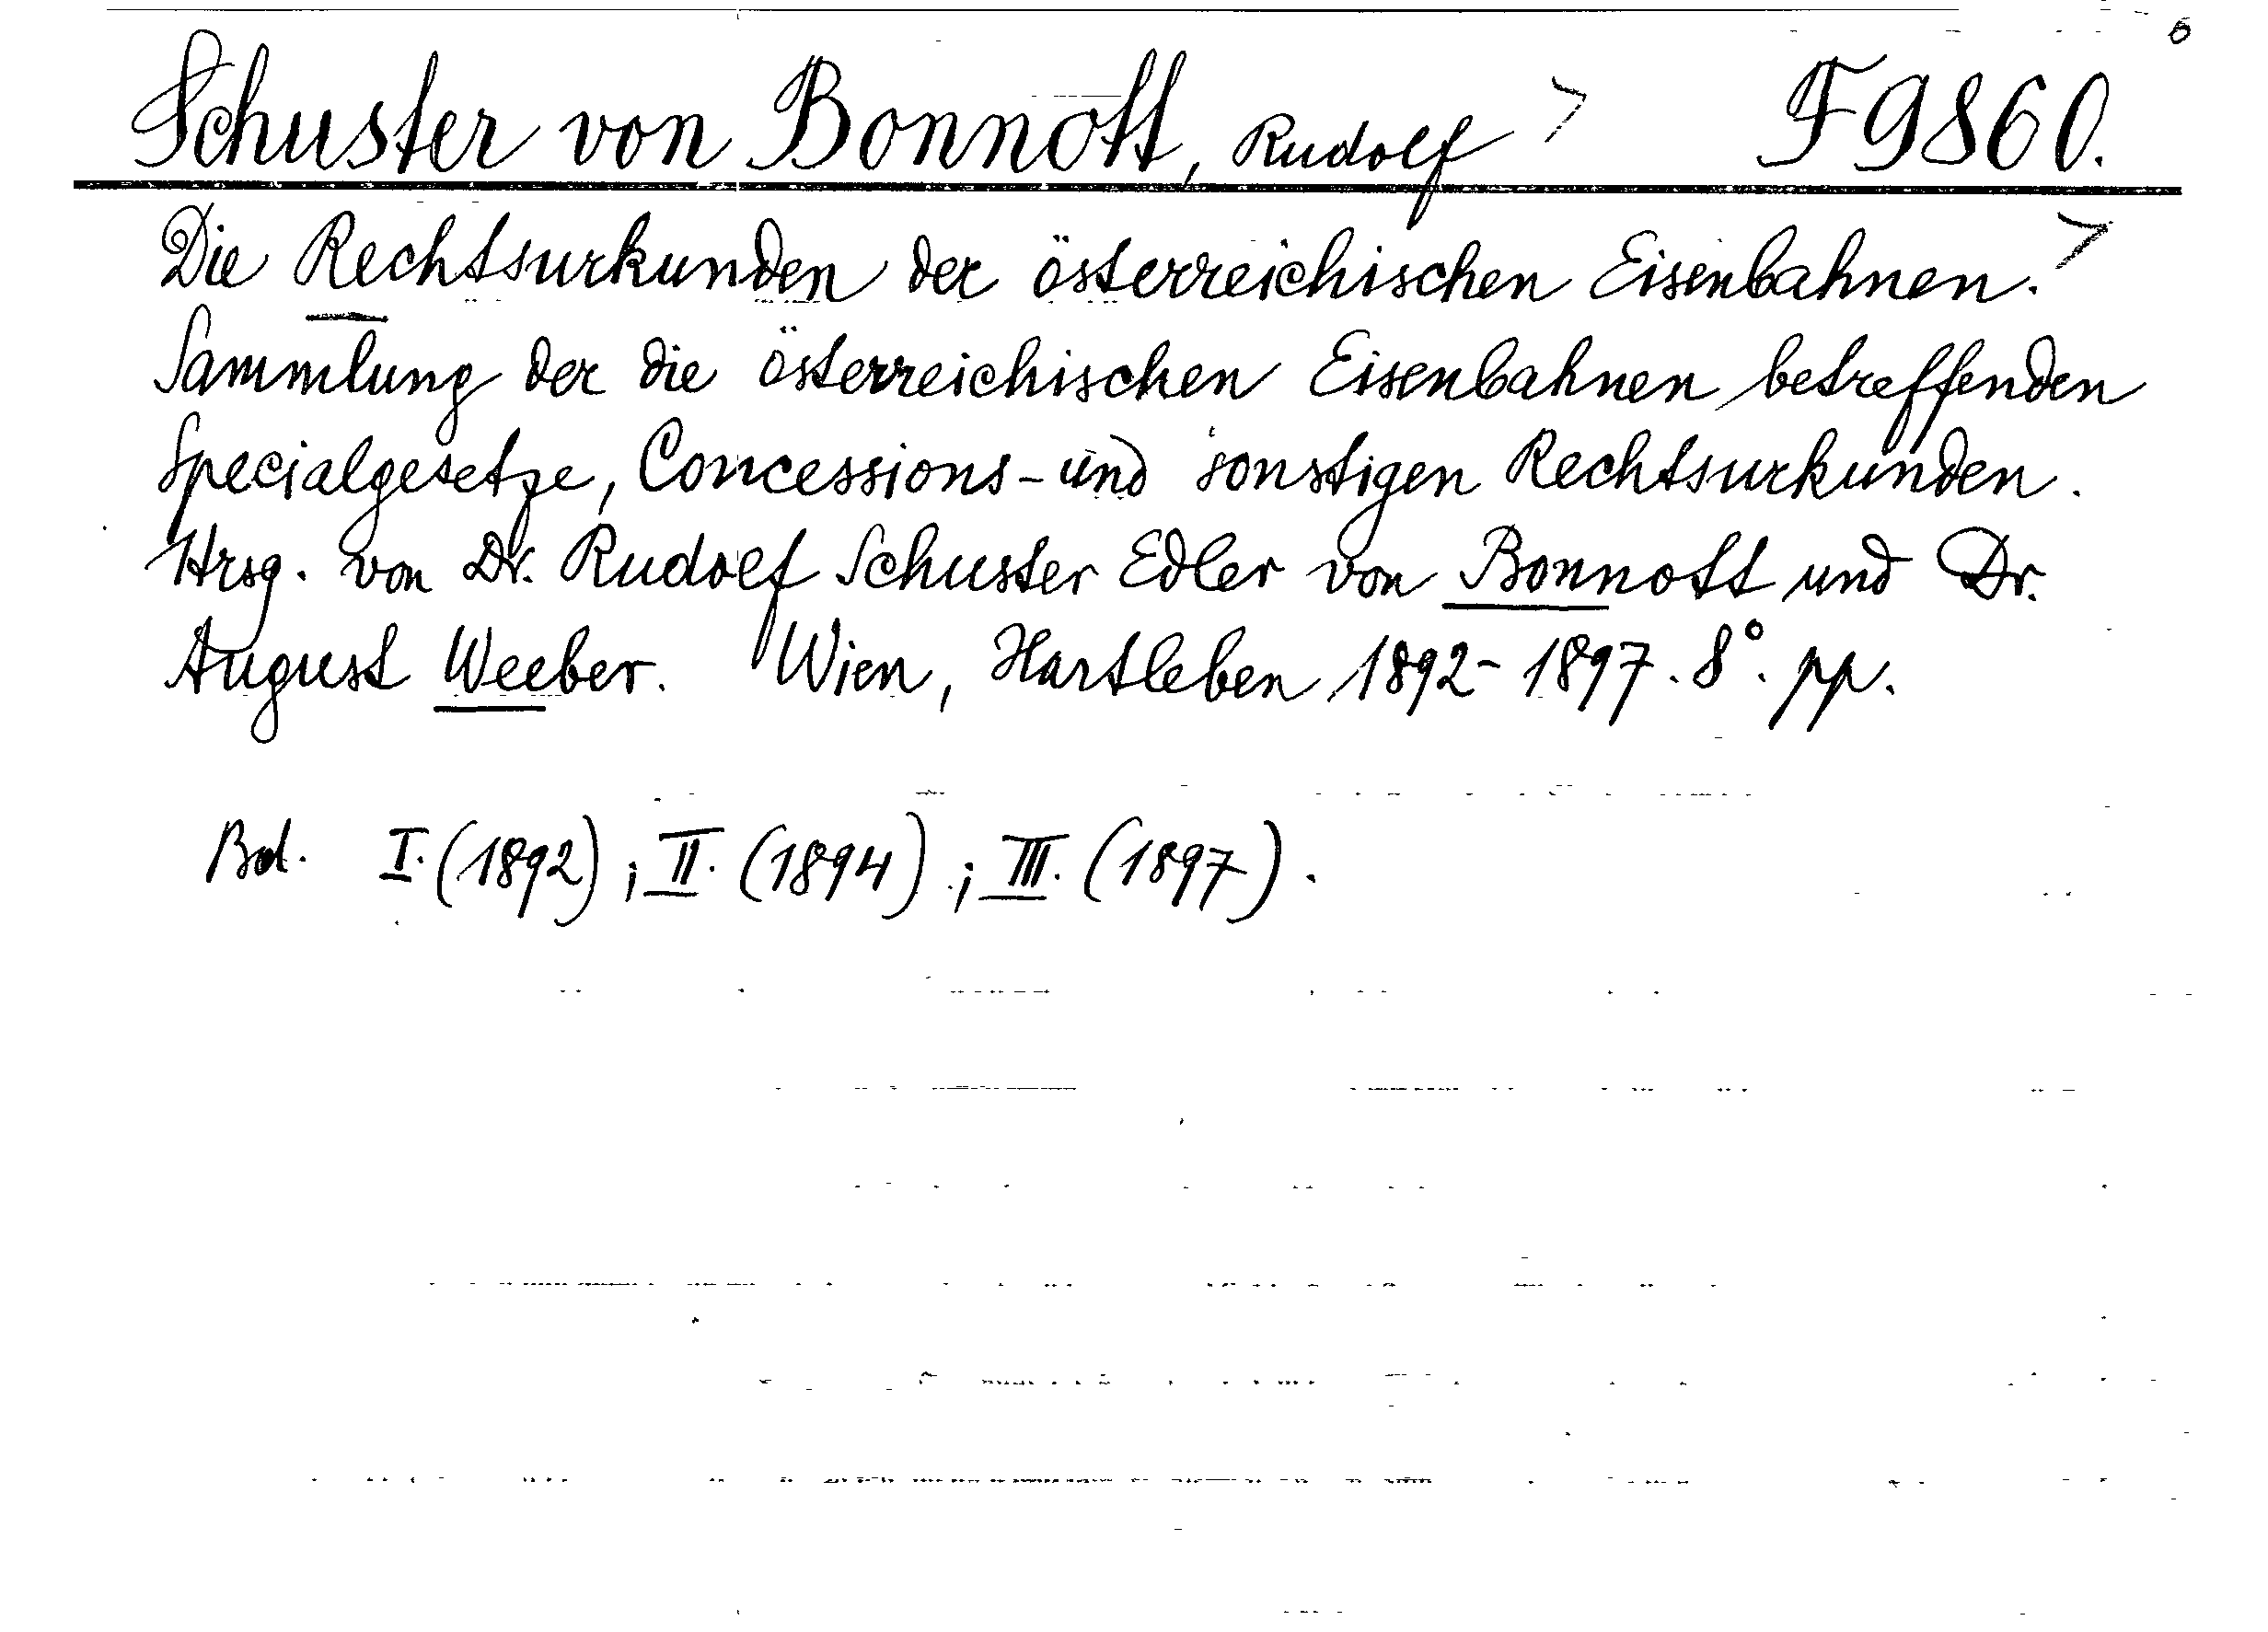 6
Schuster von Bonnott, Rudolf > F 9860.
Die Rechtsurkunden der österreichischen Eisenbahnen. >
Sammlung der die österreichischen Eisenbahnen betreffenden
Specialgesetze, Concessions- und sonstigen Rechtsurkunden.
Hrsg. von Dr. Rudolf Schuster Edler von Bonnott und Dr.
August Weeber. Wien, Hartleben 1892-1897. 8°. pp.
Bd. I. (1892); II. (1894); III. (1897).